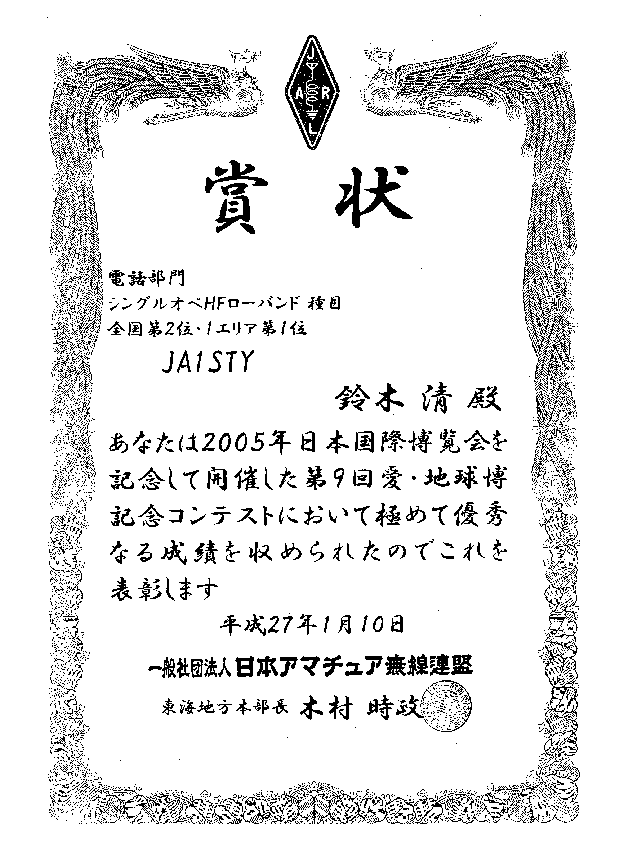 JARL
賞状
電話部門
シングルオペHFローバンド 種目
全国第2位・1エリア第1位
JA1STY
鈴木 清 殿
あなたは2005年日本国際博覧会を
記念して開催した第9回愛・地球博
記念コンテストにおいて極めて優秀
なる成績を収められたのでこれを
表彰します
平成27年1月10日
一般社団法人日本アマチュア無線連盟
東海地方本部長 木村 時政